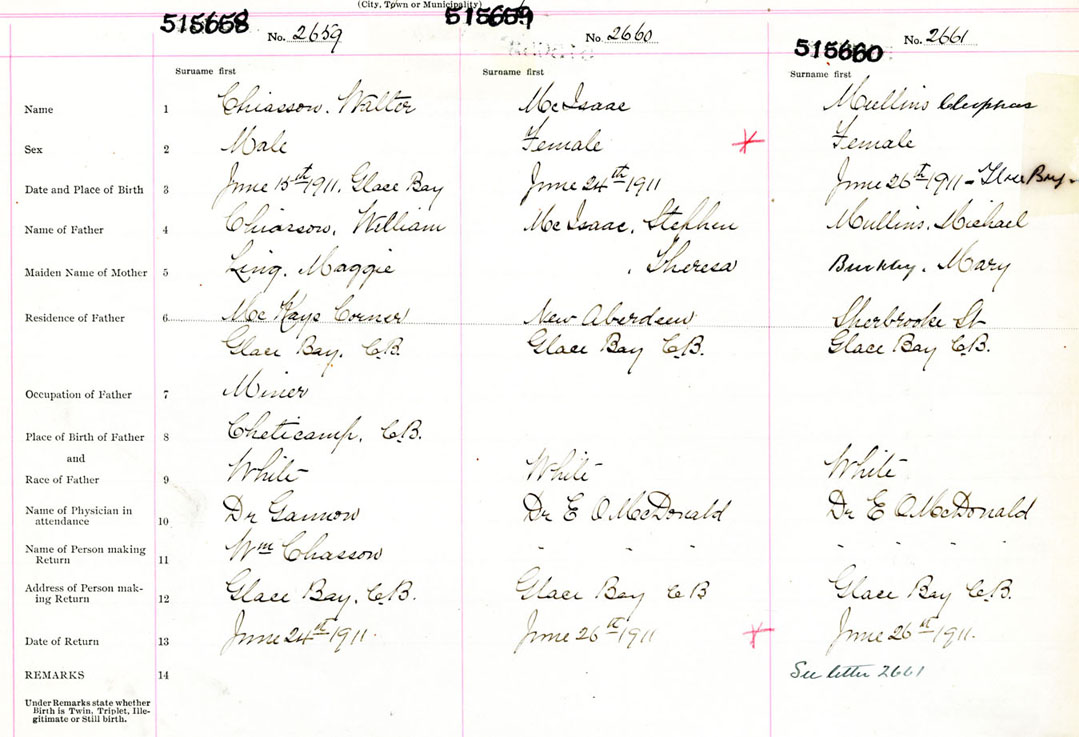 (City, Town or Municipality)
515658 No. 2659 515659 No. 2660 515660 No. 2661
Surname first Surname first Surname first
Name 1 Chiasson, Walter McIsaac Mullins Cleophas
Sex 2 Male Female Female
Date and Place of Birth 3 June 15th 1911, Glace Bay June 24th 1911 June 26th 1911 - Glace Bay -
Name of Father 4 Chiasson, William McIsaac, Stephen Mullins, Michael
Maiden Name of Mother 5 Ling, Maggie , Theresa Mary
Residence of Father 6 McKays Corner New Aberdeen Sherbrooke St
Glace Bay, C.B. Glace Bay C.B. Glace Bay C.B.
Occupation of Father 7 Miner
Place of Birth of Father 8 Cheticamp, C.B.
and
Race of Father 9 White White White
Name of Physician in
attendance 10 Dr Gannon Dr E O McDonald Dr E O McDonald
Name of Person making
Return 11 Wm Chasson " " " " " " "
Address of Person mak-
ing Return 12 Glace Bay, C.B. Glace Bay C B Glace Bay C.B.
Date of Return 13 June 24st 1911 June 26st 1911 June 26st 1911.
REMARKS 14 See letter 2661
Under Remarks state whether
Birth is Twin, Triplet, Ille-
gitimate or Still birth.